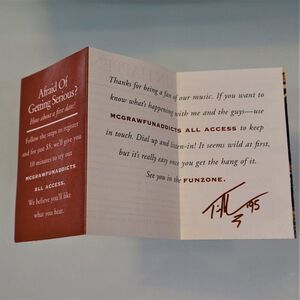 Afraid Of
Getting Serious?
How about a first date?
Follow the steps to register
and for just $5, we'll give you
10 minutes to try out
MCGRAWFUNADDICTS
ALL ACCESS.
We believe you'll like
what you hear.
Thanks for being a fan of our music. If you want to
know what's happening with me and the guys—use
MCGRAWFUNADDICTS ALL ACCESS to keep
in touch. Dial up and listen-in! It seems wild at first,
but it's really easy once you get the hang of it.
See you in the FUNZONE.
'95